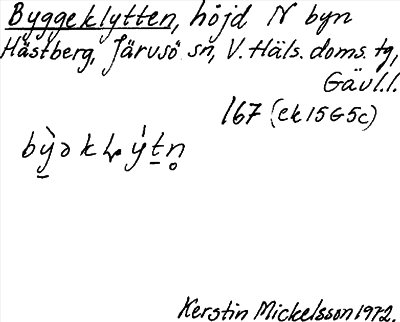 Byggeklytten, höjd N byn
Hästberg, Järvsö sn, V. Häls. doms. tg,
Gävl.l.
167 (ek 15G5c)
Kerstin Mickelsson 1972.